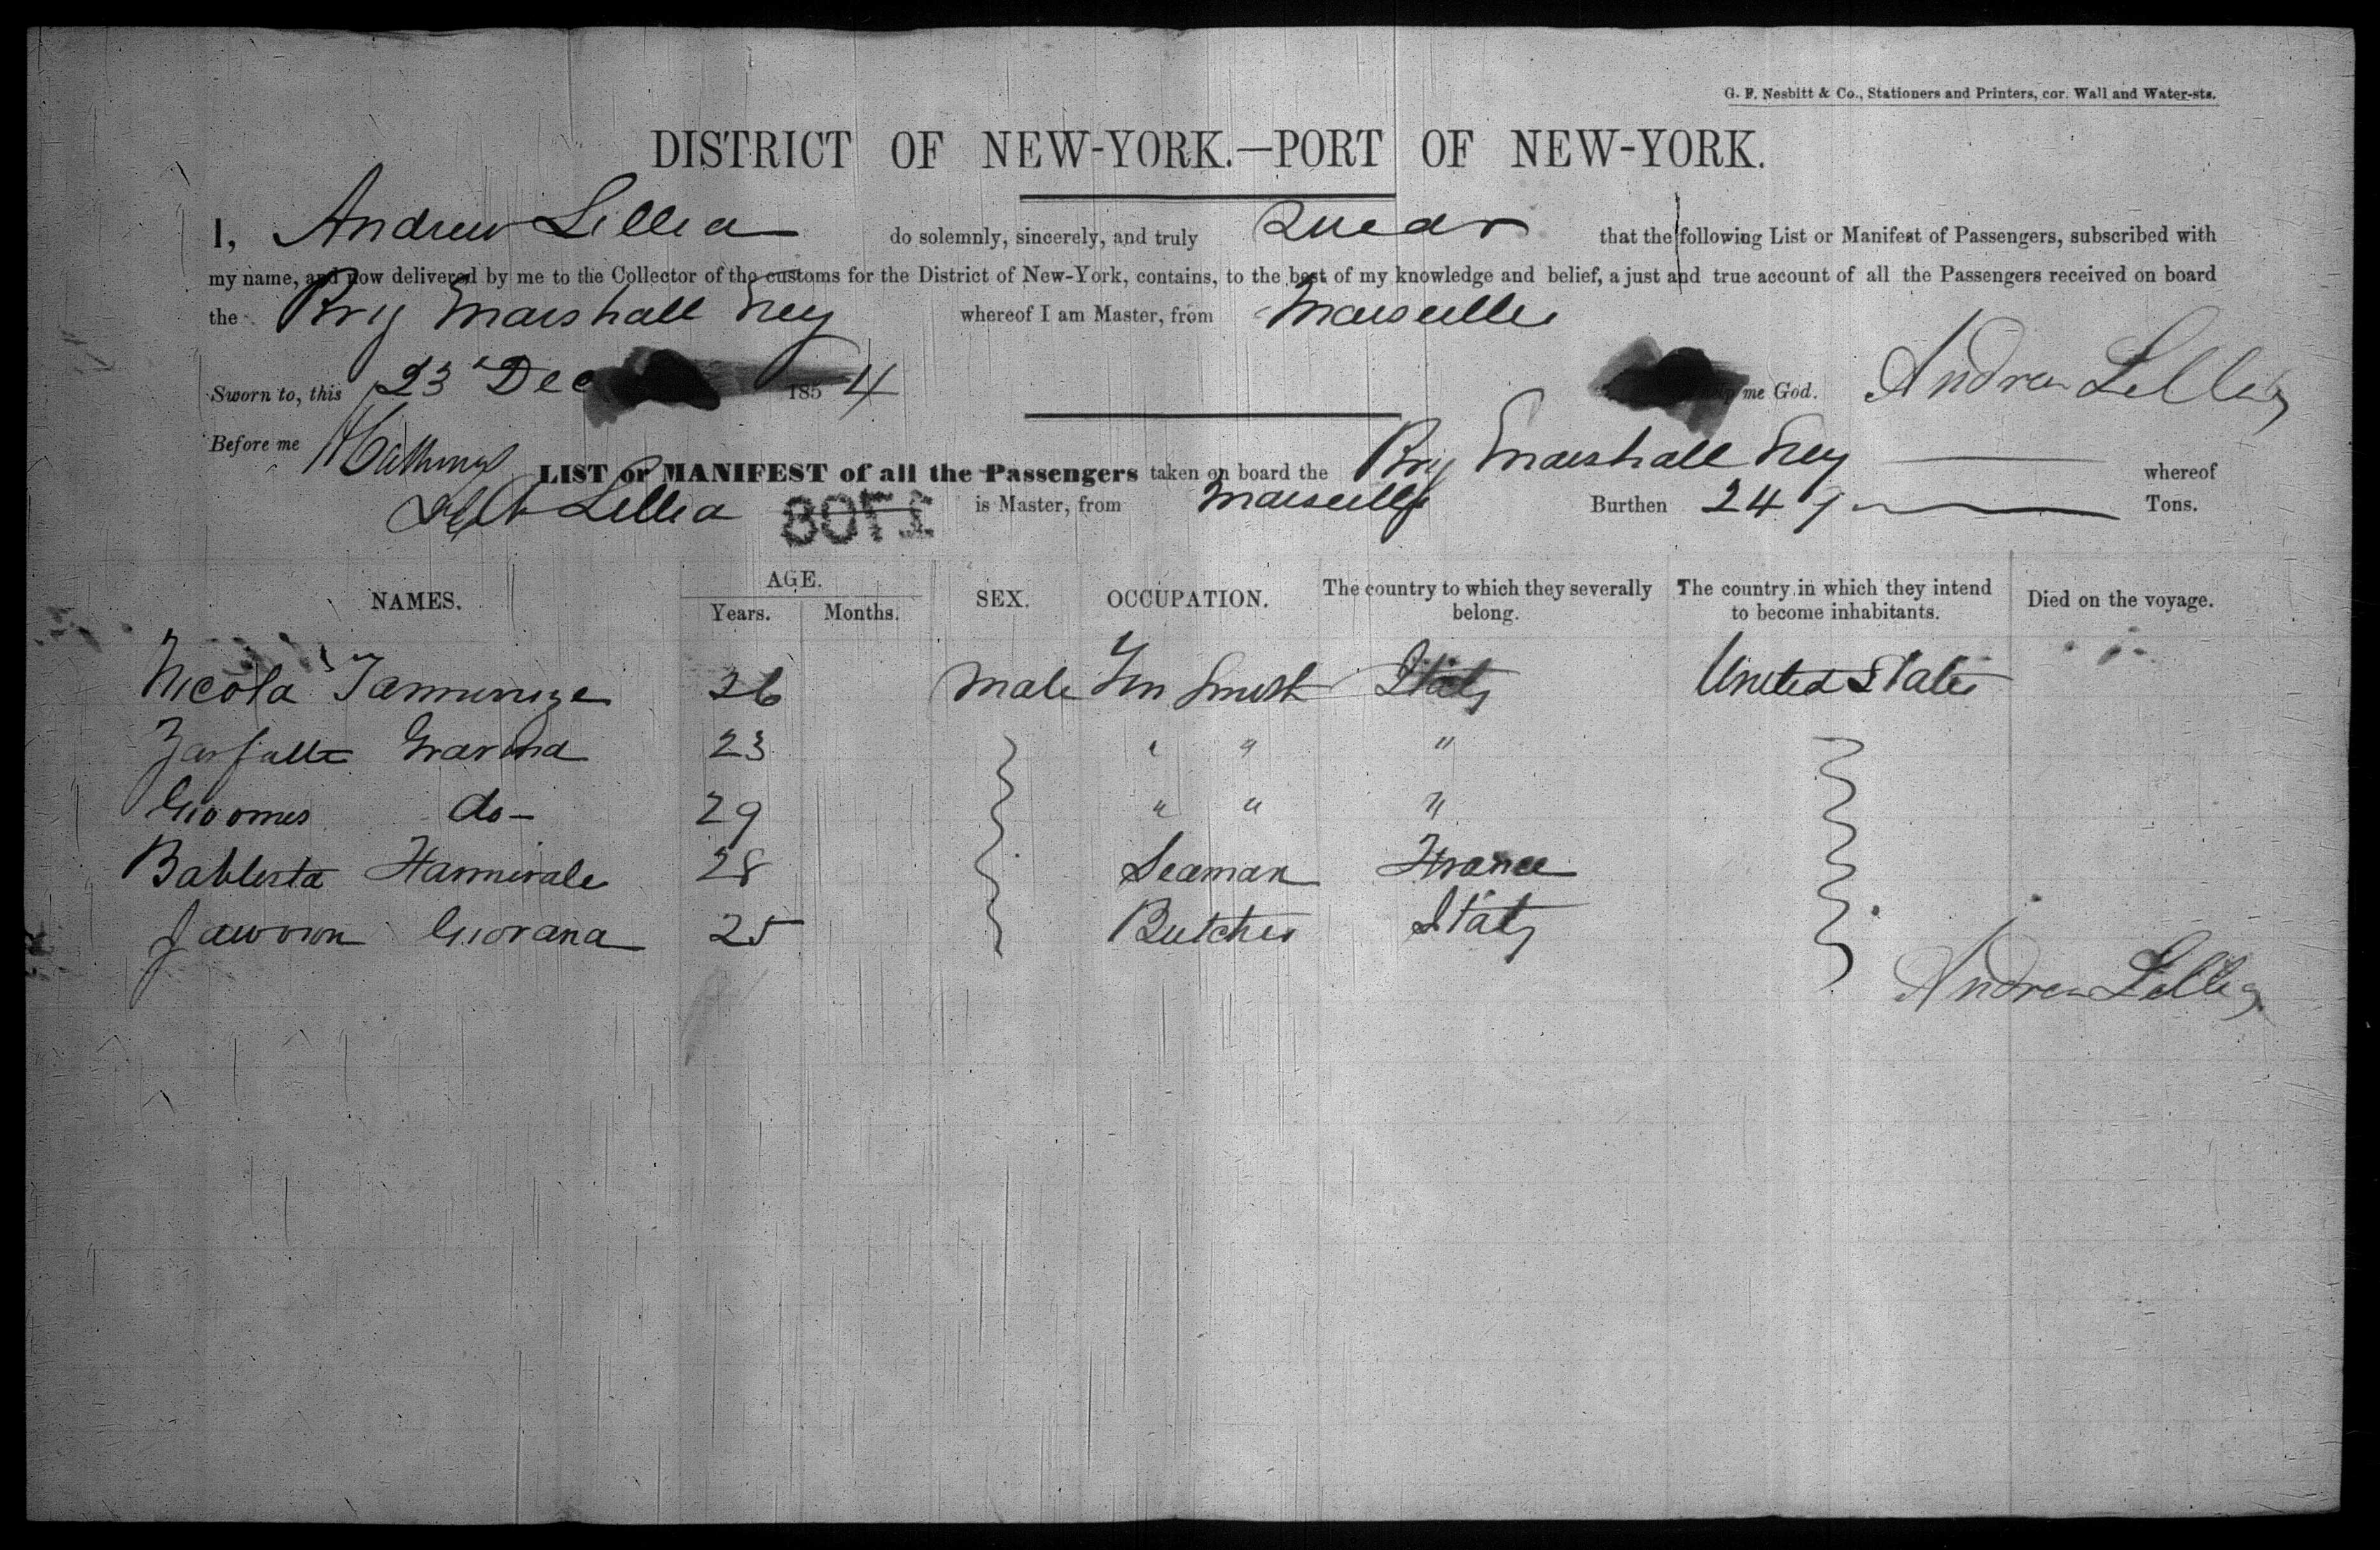 G. F. Nesbitt & Co., Stationers and Printers, cor. Wall and Water-sts.
DISTRICT OF NEW-YORK.—PORT OF NEW-YORK.
I, Andrew Lillia do solemnly, sincerely, and truly Swear that the following List or Manifest of Passengers, subscribed with
my name, and now delivered by me to the Collector of the customs for the District of New-York, contains, to the best of my knowledge and belief, a just and true account of all the Passengers received on board
the Brig Marshall Ney whereof I am Master, from Marseilles
Sworn to, this 23 Dec 1854 me God. Andrew Lillia
Before me
LIST or MANIFEST of all the Passengers taken on board the Brig Marshall Ney whereof
Lillia is Master, from Marseilles Burthen 249 Tons.
NAMES. AGE. SEX. OCCUPATION. The country to which they severally belong. The country in which they intend to become inhabitants. Died on the voyage.
Years. Months.
Nicola 26 Male Tin Smith Italy United States
Gravina 23 " " "
do - 29 " " "
28 Seaman France
25 Butcher Italy
Andrew Lillia